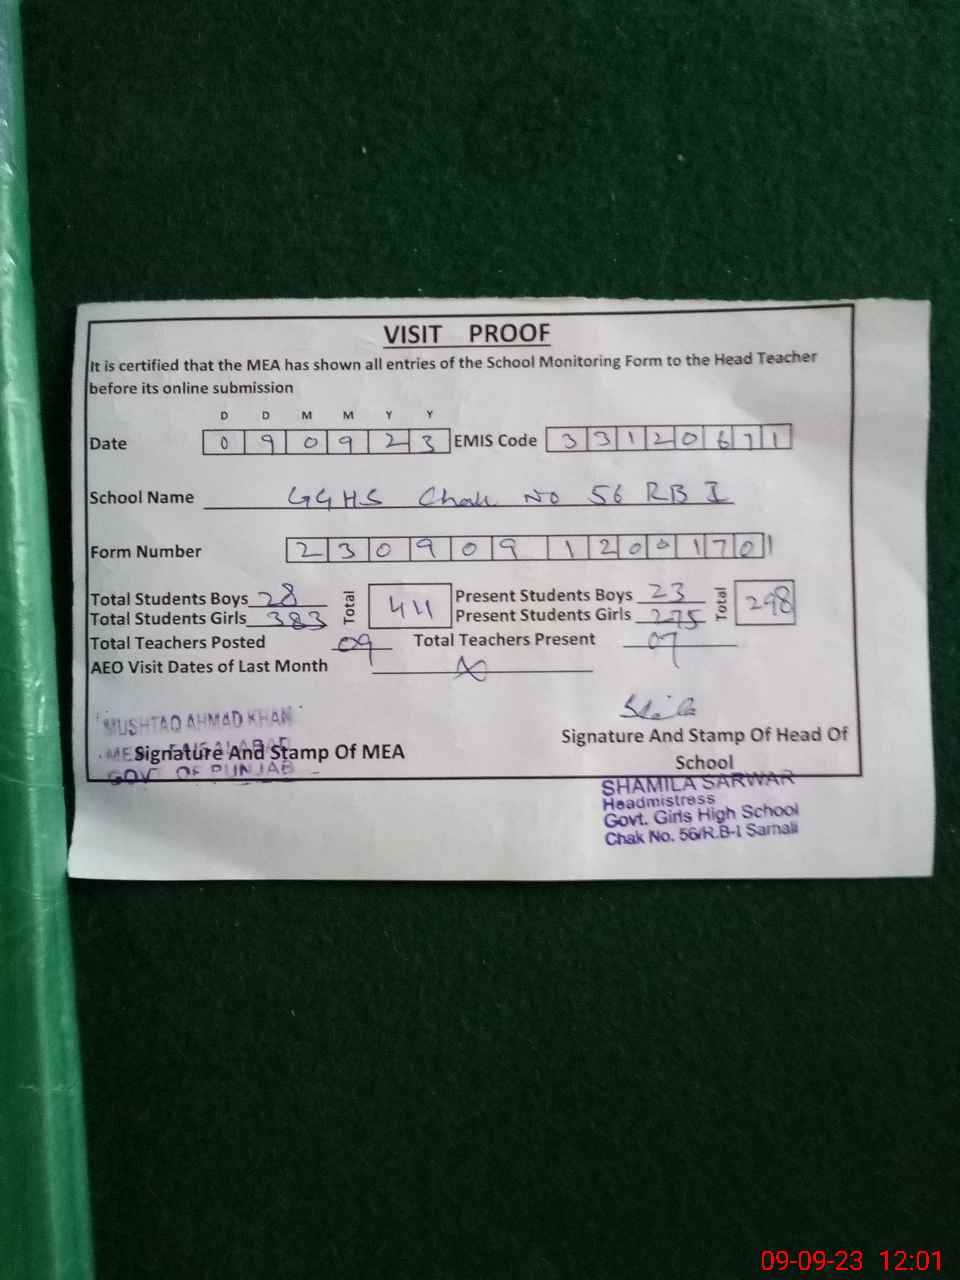 VISIT PROOF
It is certified that the MEA has shown all entries of the School Monitoring Form to the Head Teacher
before its online submission
D D M M Y Y
Date 0 9 0 9 2 3 EMIS Code 3 3 1 2 0 6 7 1
School Name GGHS Chak No 56 RB I
Form Number 2 3 0 9 0 9 1 2 0 0 1 7 0 1
Total Students Boys 28 Total 411 Present Students Boys 23 Total 298
Total Students Girls 383 Present Students Girls 275
Total Teachers Posted 09 Total Teachers Present 07
AEO Visit Dates of Last Month
MUSHTAQ AHMAD KHAN
MEA FAISALABAD
Signature And Stamp Of MEA
GOV OF PUNJAB
Signature And Stamp Of Head Of
School
SHAMILA SARWAR
Headmistress
Govt. Girls High School
Chak No. 56/R.B-I Sarhali
09-09-23 12:01